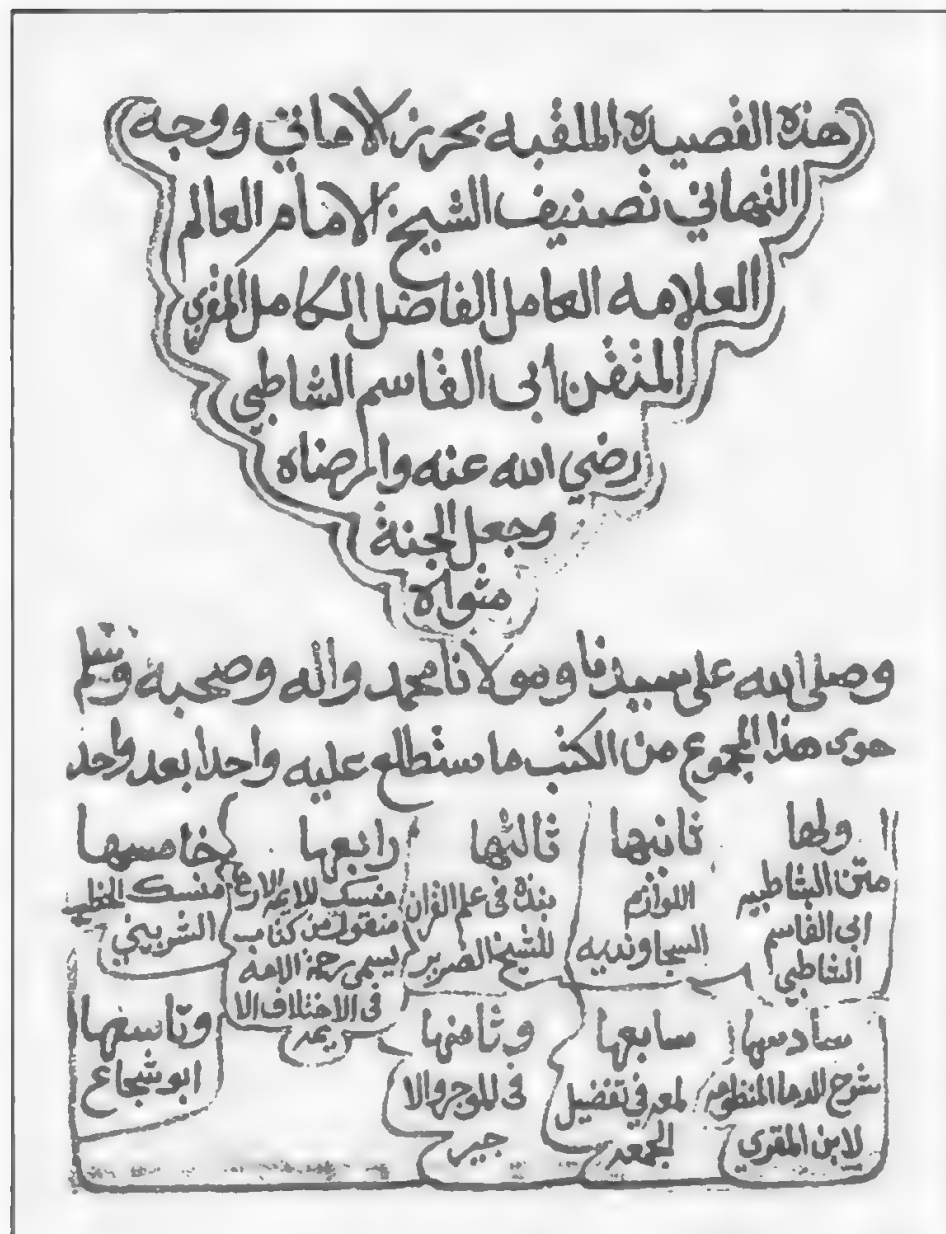 هذه القصيدة الملقبه بحرز الاماني ووجه
التهاني تصنيف الشيخ الامام العالم
العلامه العامل الفاضل الكامل المقري
المتقن ابى القاسم الشاطبي
رضي الله عنه وارضاه
وجعل الجنة
مثواه
وصلى الله على سيدنا ومولانا محمد واله وصحبه وسلم
حوى هذا المجموع من الكتب ما ستطلع عليه واحدا بعد واحد
ولها
متن الشاطبيه
ابى القاسم
الشاطبي
ثانيها
اللوازم
السجاونديه
ثالثها
نبذة في علم القران
للشيخ الضرير
رابعها
منسك للايمة الاربع
منقول من كتاب
يسمى رحمة الامة
فى الاختلاف الا
يمه
خامسها
منسك الخطيب
الشربيني
سادسها
شرح المنظومه
لابن المقري
سابعها
لمعه في تفضيل
الجمعه
وثامنها
فى الموجر والا
جير
وتاسعها
ابو شجاع